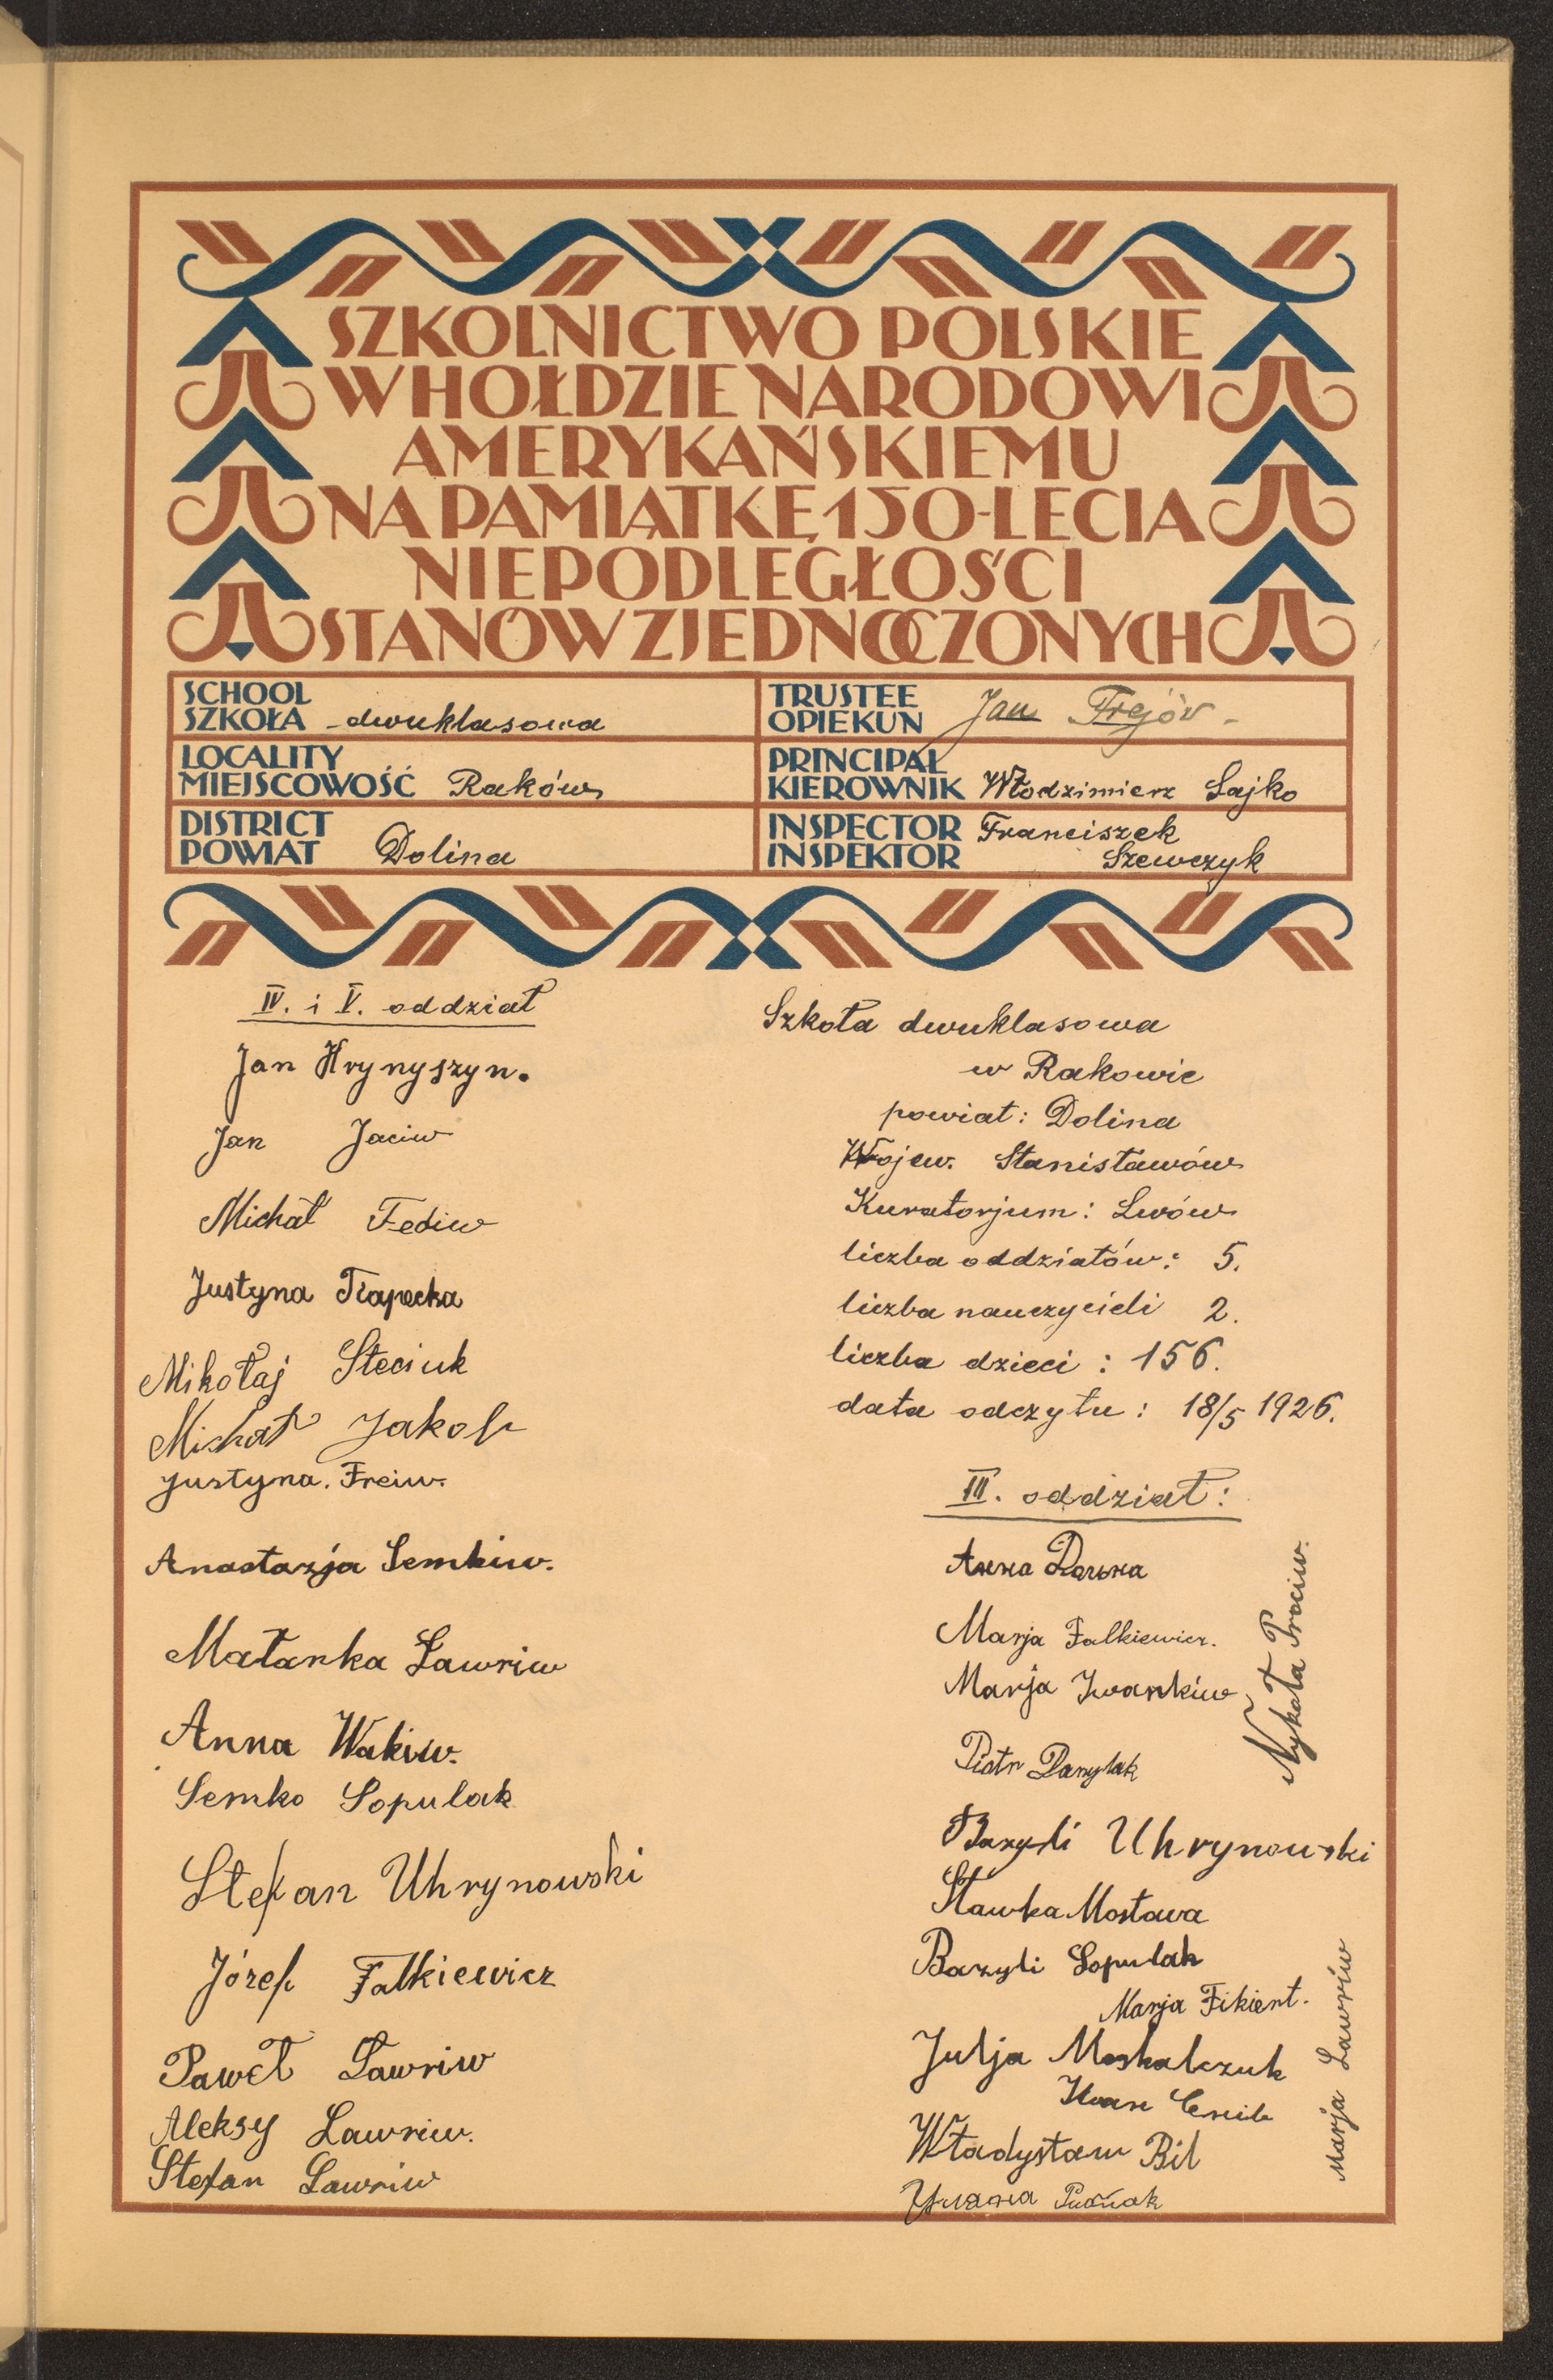 SZKOLNICTWO POLSKIE
W HOŁDZIE NARODOWI
AMERYKAŃSKIEMU
NA PAMIĄTKĘ 150-LECIA
NIEPODLEGŁOŚCI
STANÓW ZJEDNOCZONYCH
SCHOOL
SZKOŁA - dwuklasowa
TRUSTEE
OPIEKUN Jan Frejów -
LOCALITY
MIEJSCOWOŚĆ Raków
PRINCIPAL
KIEROWNIK Włodzimierz Sajko
DISTRICT
POWIAT Dolina
INSPECTOR Franciszek
INSPEKTOR Szewczyk
IV. i V. oddział
Jan Hrynyszyn.
Jan Jaciw
Michał Fediw
Justyna
Mikołaj Steciuk
Michał Jakob
Justyna. Freiw.
Anastazja Semkiw.
Małanka Ławriw
Anna Wakiw.
Semko Sopulak
Stefan Uhrynowski
Józef Falkiewicz
Paweł Ławriw
Aleksy Ławriw.
Stefan Ławriw
Szkoła dwuklasowa
w Rakowie
powiat: Dolina
Wojew. Stanisławów
Kuratorjum: Lwów
liczba oddziałów: 5.
liczba nauczycieli 2.
liczba dzieci : 156.
data odczytu : 18/5 1926.
III. oddział:
Anna
Marja Falkiewicz.
Marja Iwankiw
Piotr Danylak
Bazyli Uhrynowski
Sławka Mostowa
Bazyli Sopulak
Marja Fikiert.
Julja Moskalczuk
Iwan
Władysław Bil
Nykoła Prociw.
Marja Ławrów